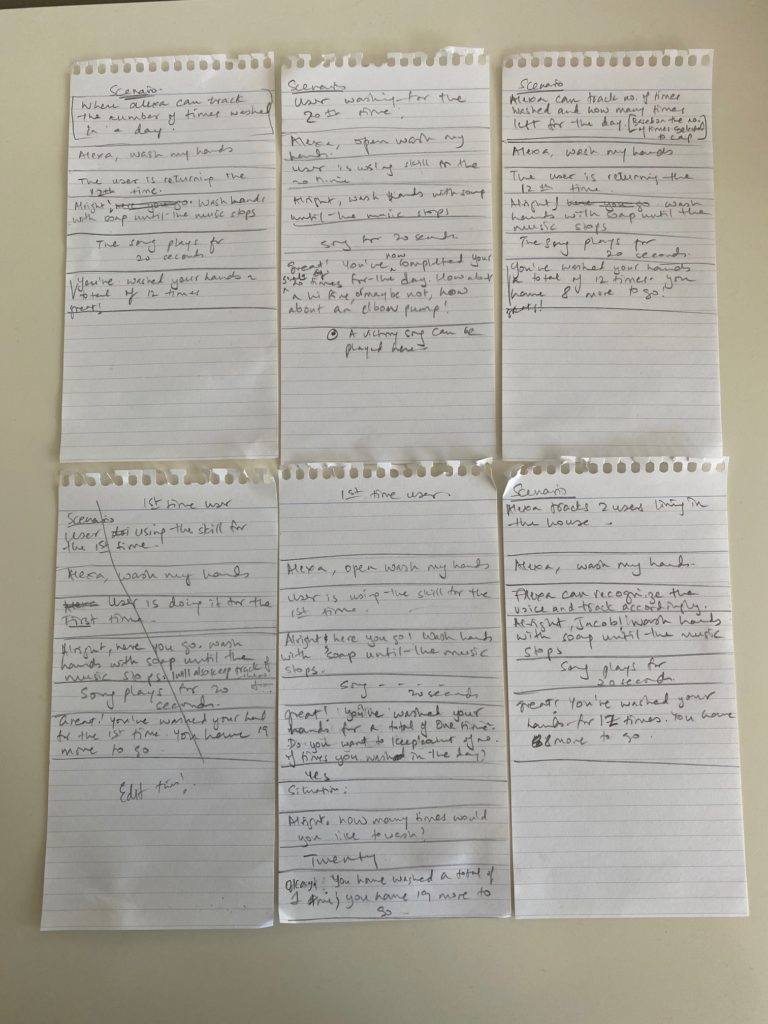 Scenario
Where alexa can track
the number of times washed
in a day.
Alexa, wash my hands
The user is returning the
12th time.
Alright! here you go. Wash hands
with soap until the music stops
The song plays for
20 seconds.
You've washed your hands a
total of 12 times
great!
Scenario
User washing for the
20th time.
Alexa, open wash my
hands.
User is using skill for the
Alright, wash hands with soap
until the music stops
Song for 20 seconds
Great! You've now completed your
times for the day. How about
a hi five or maybe not, how
about an elbow pump!
A victory song can be
played here
Scenario
Alexa can track no. of times
washed and how many times
left for the day. [Based on the no.
of times selected
Alexa, wash my hands
The user is returning the
12th time.
Alright! here you go wash
hands with soap until the
music stops
The song plays for
20 seconds.
You've washed your hands
a total of 12 times. You
have 8 more to go!
great!
1st time user
Scenario
User using the skill for
the 1st time.
Alexa, wash my hands
Alexa User is doing it for the
First time.
Alright, here you go. Wash
hands with soap until the
music stops. I will also keep track of
Song plays for 20
seconds.
Great! You've washed your hand
for the 1st time. You have 19
more to go
Edit this!
1st time user.
Alexa, open wash my hands
User is using the skill for the
1st time.
Alright! here you go! Wash hands
with soap until the music
stops.
Song - - - -
20 seconds
Great! You've washed your
hands for a total of One time.
Do you want to keep count of no.
of times you washed in the day?
Yes
Situation:
Alright, how many times would
you like to wash?
Twenty
Okay! You have washed a total of
1 time, you have 19 more to
go
Scenario
Alexa tracks 2 users living in
the house.
Alexa, wash my hands.
Alexa can recognize the
voice and track accordingly.
Alright, Jacob! wash hands
with soap until the music
stops
Song plays for
20 seconds.
Great! You've washed your
hands for 12 times. You have
8 more to go.